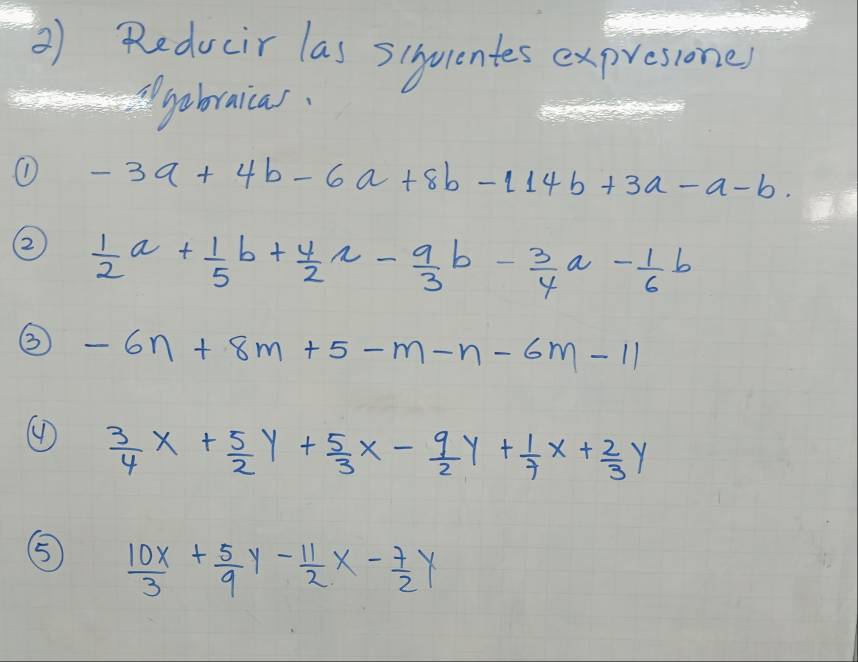 2) Reducir las siguientes expresiones
Algebraicas.
① -3a + 4b - 6a + 8b - 114b + 3a - a - b.
② 1/2 a + 1/5 b + 4/2 a - 9/3 b - 3/4 a - 1/6 b
③ - 6n + 8m + 5 - m - n - 6m - 11
④ 3/4 x + 5/2 y + 5/3 x - 9/2 y + 1/7 x + 2/3 y
⑤ 10x/3 + 5/9 y - 11/2 x - 7/2 y